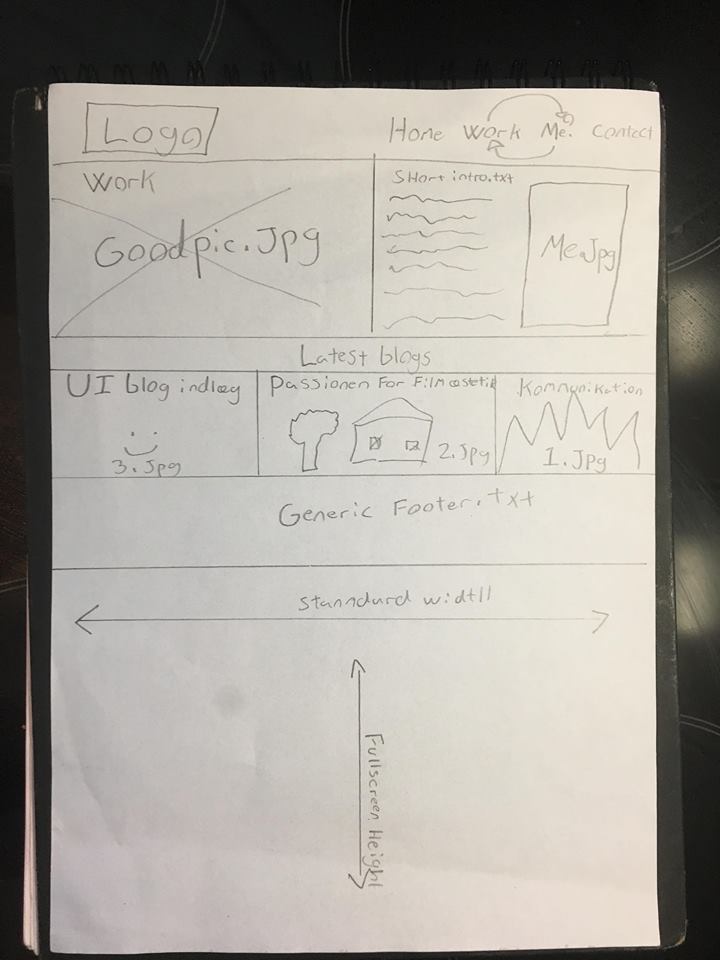 Logo
Home Work Me. Contact
Work
Goodpic.Jpg
Short intro.txt
Me.Jpg
Latest blogs
UI blog indlæg
3.Jpg
Passionen For Film æstetik
2.Jpg
Kommunikation
1.Jpg
Generic Footer.txt
Stanndard width
Fullscreen Height